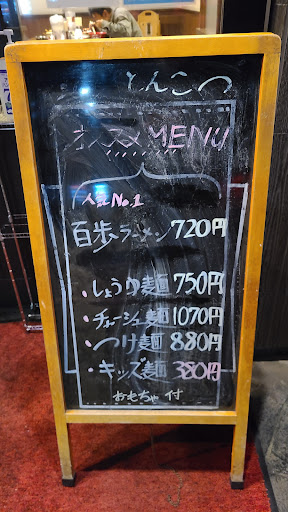 とんこつ
オススメMENU
人気No.1
百歩ラーメン 720円
・しょうゆ麺 750円
・チャーシュー麺 1070円
・つけ麺 880円
・キッズ麺 380円
おもちゃ付